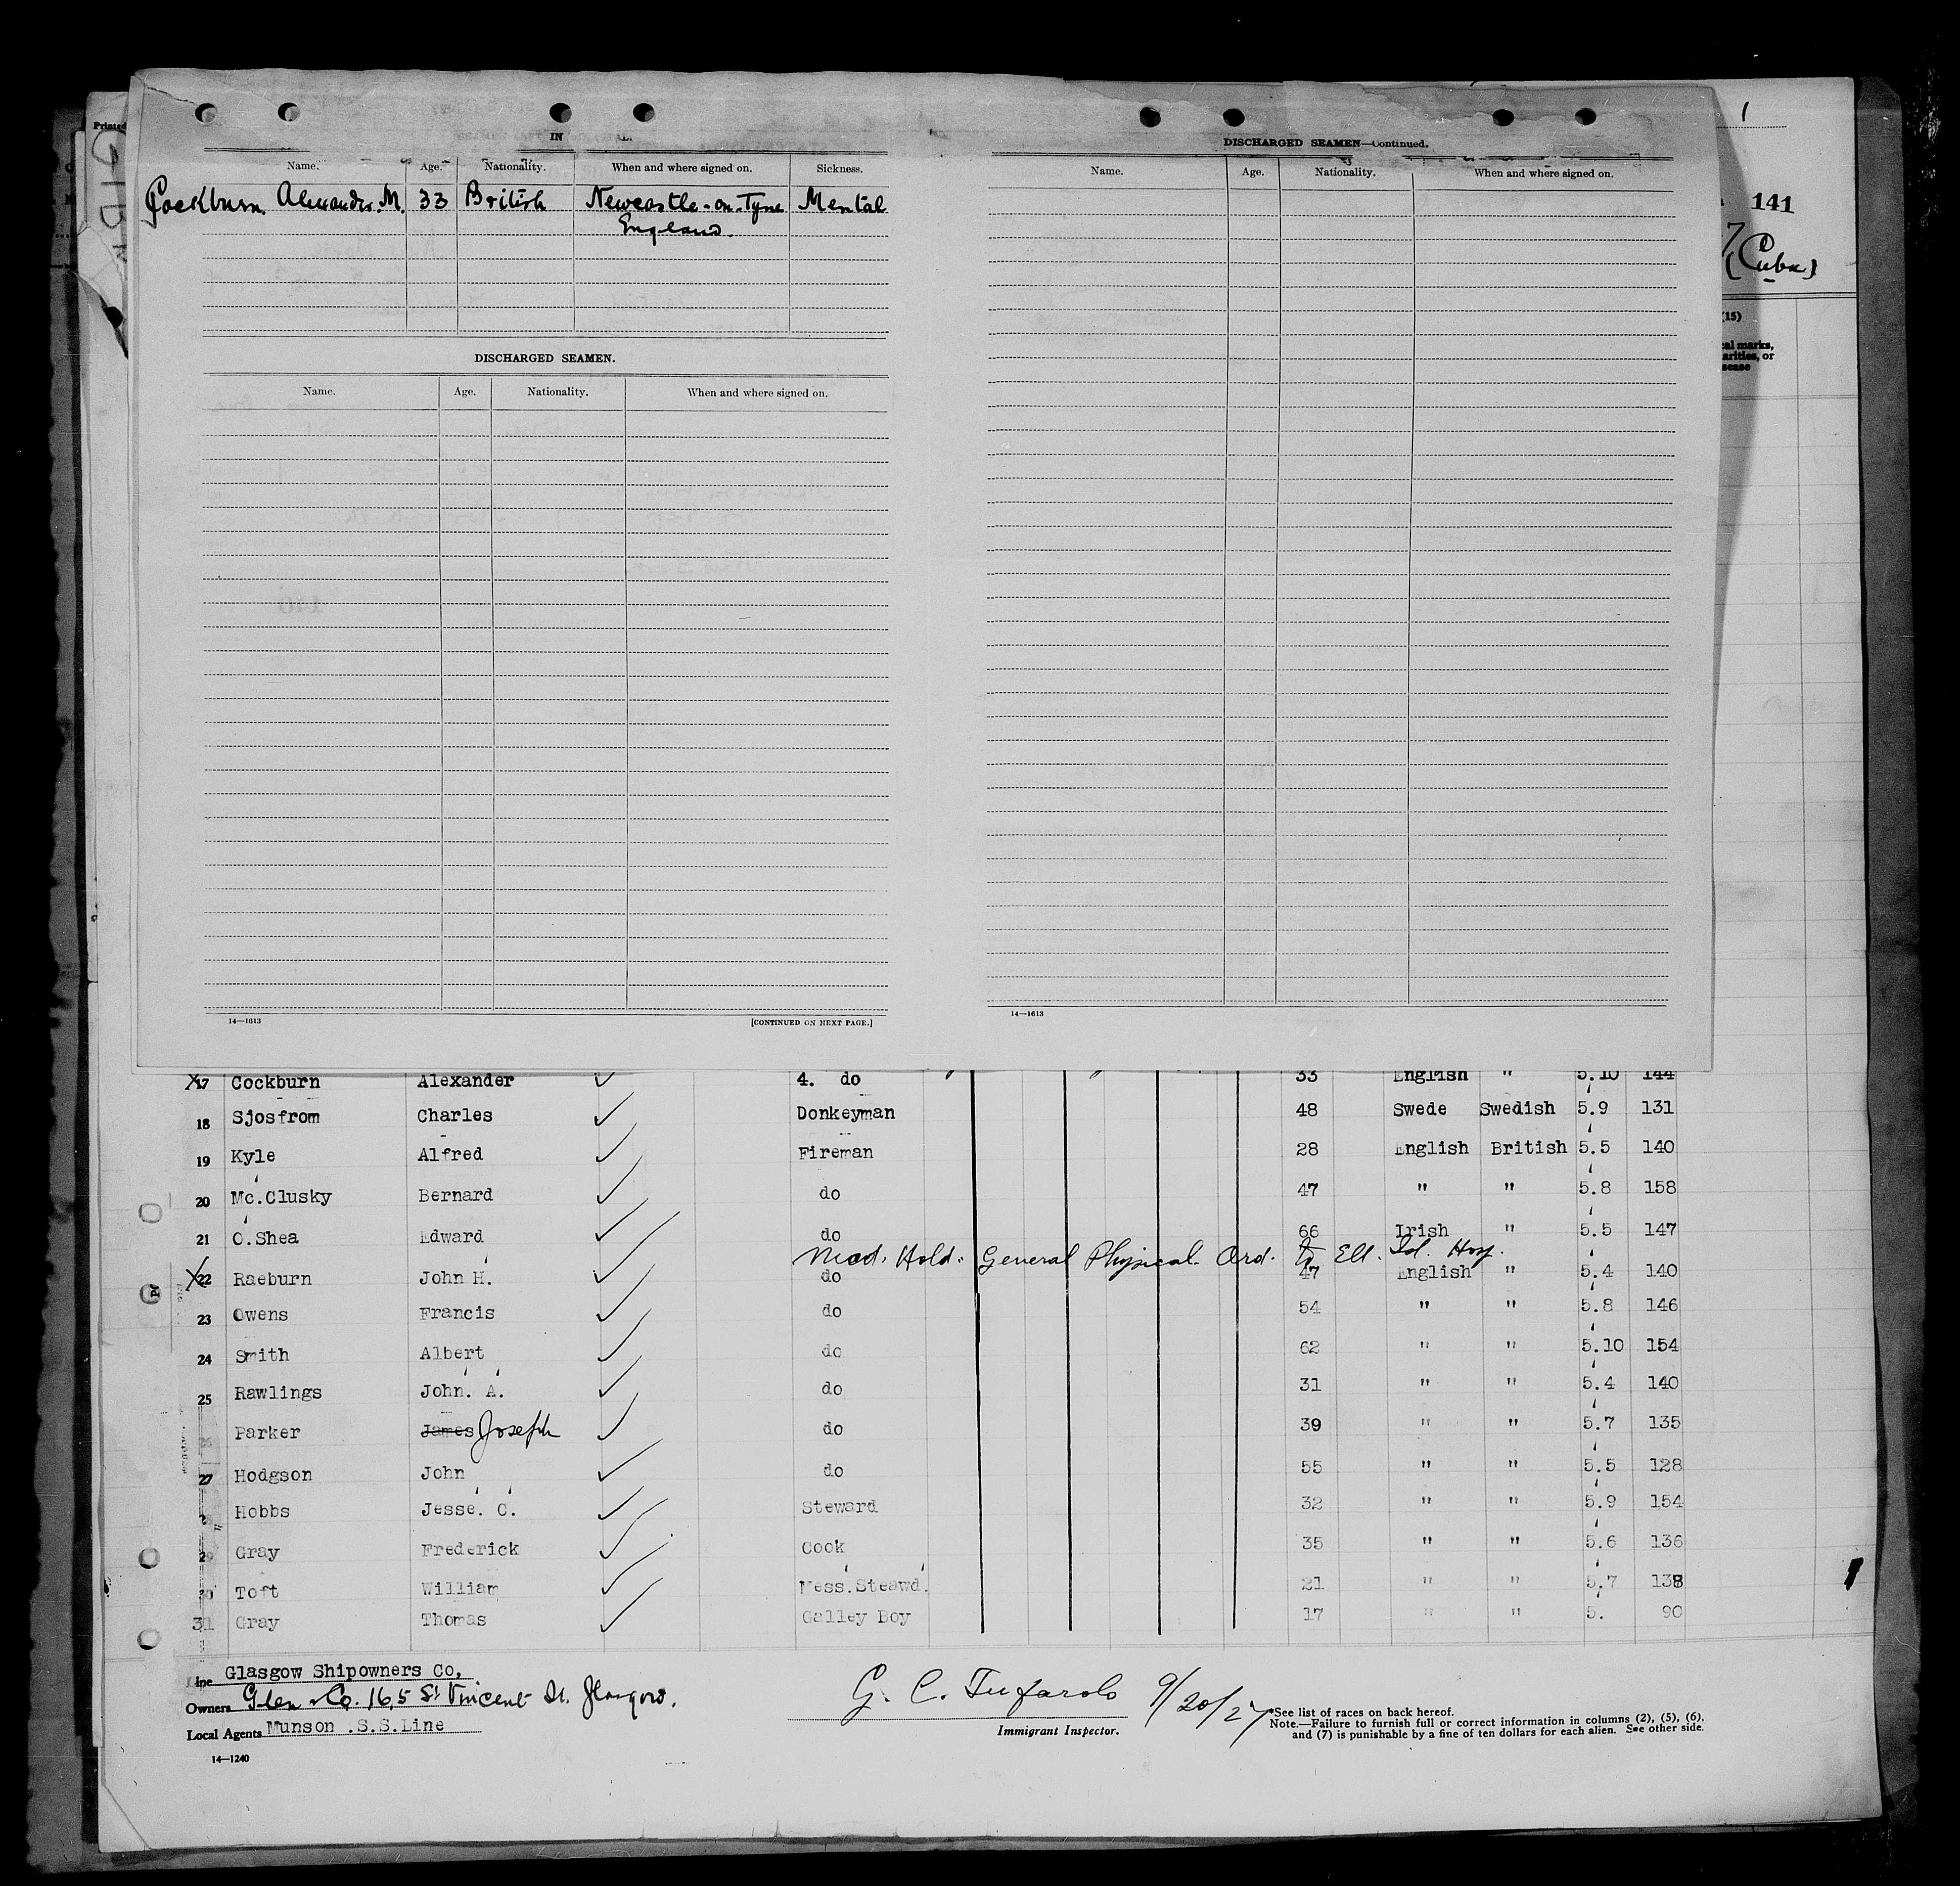 IN
Name. Age. Nationality. When and where signed on. Sickness.
Cockburn. Alexander. M. 33 British Newcastle-on-Tyne Mental
England.
DISCHARGED SEAMEN.
Name. Age. Nationality. When and where signed on.
14—1613 [CONTINUED ON NEXT PAGE.]
DISCHARGED SEAMEN—Continued.
Name. Age. Nationality. When and where signed on.
14—1613
Printed
1
141
(Cuba)
(15)
al marks,
arities, or
sease
X17 Cockburn Alexander ✓ 4. do 33 English " 5.10 144
18 Sjosfrom Charles ✓ Donkeyman 48 Swede Swedish 5.9 131
19 Kyle Alfred ✓ Fireman 28 English British 5.5 140
20 Mc.Clusky Bernard ✓ do 47 " " 5.8 158
21 O.Shea Edward ✓ do 66 Irish " 5.5 147
Med. Hold. General Physical. Ord. to Ell. Isl. Hosp.
X22 Raeburn John H. ✓ do 47 English " 5.4 140
23 Owens Francis ✓ do 54 " " 5.8 146
24 Smith Albert ✓ do 62 " " 5.10 154
25 Rawlings John. A. ✓ do 31 " " 5.4 140
26 Parker James Joseph ✓ do 39 " " 5.7 135
27 Hodgson John ✓ do 55 " " 5.5 128
28 Hobbs Jesse. C. ✓ Steward 32 " " 5.9 154
29 Gray Frederick ✓ Cook 35 " " 5.6 136
30 Toft William ✓ Mess.Steawd. 21 " " 5.7 138
31 Gray Thomas ✓ Galley Boy 17 " " 5. 90
Line Glasgow Shipowners Co,
Owners Glen & Co. 165 St Vincent St. Glasgow.
Local Agents Munson .S.S.Line
14—1240
G. C. Tufarolo 9/20/27
Immigrant Inspector.
*See list of races on back hereof.
Note.—Failure to furnish full or correct information in columns (2), (5), (6),
and (7) is punishable by a fine of ten dollars for each alien. See other side.